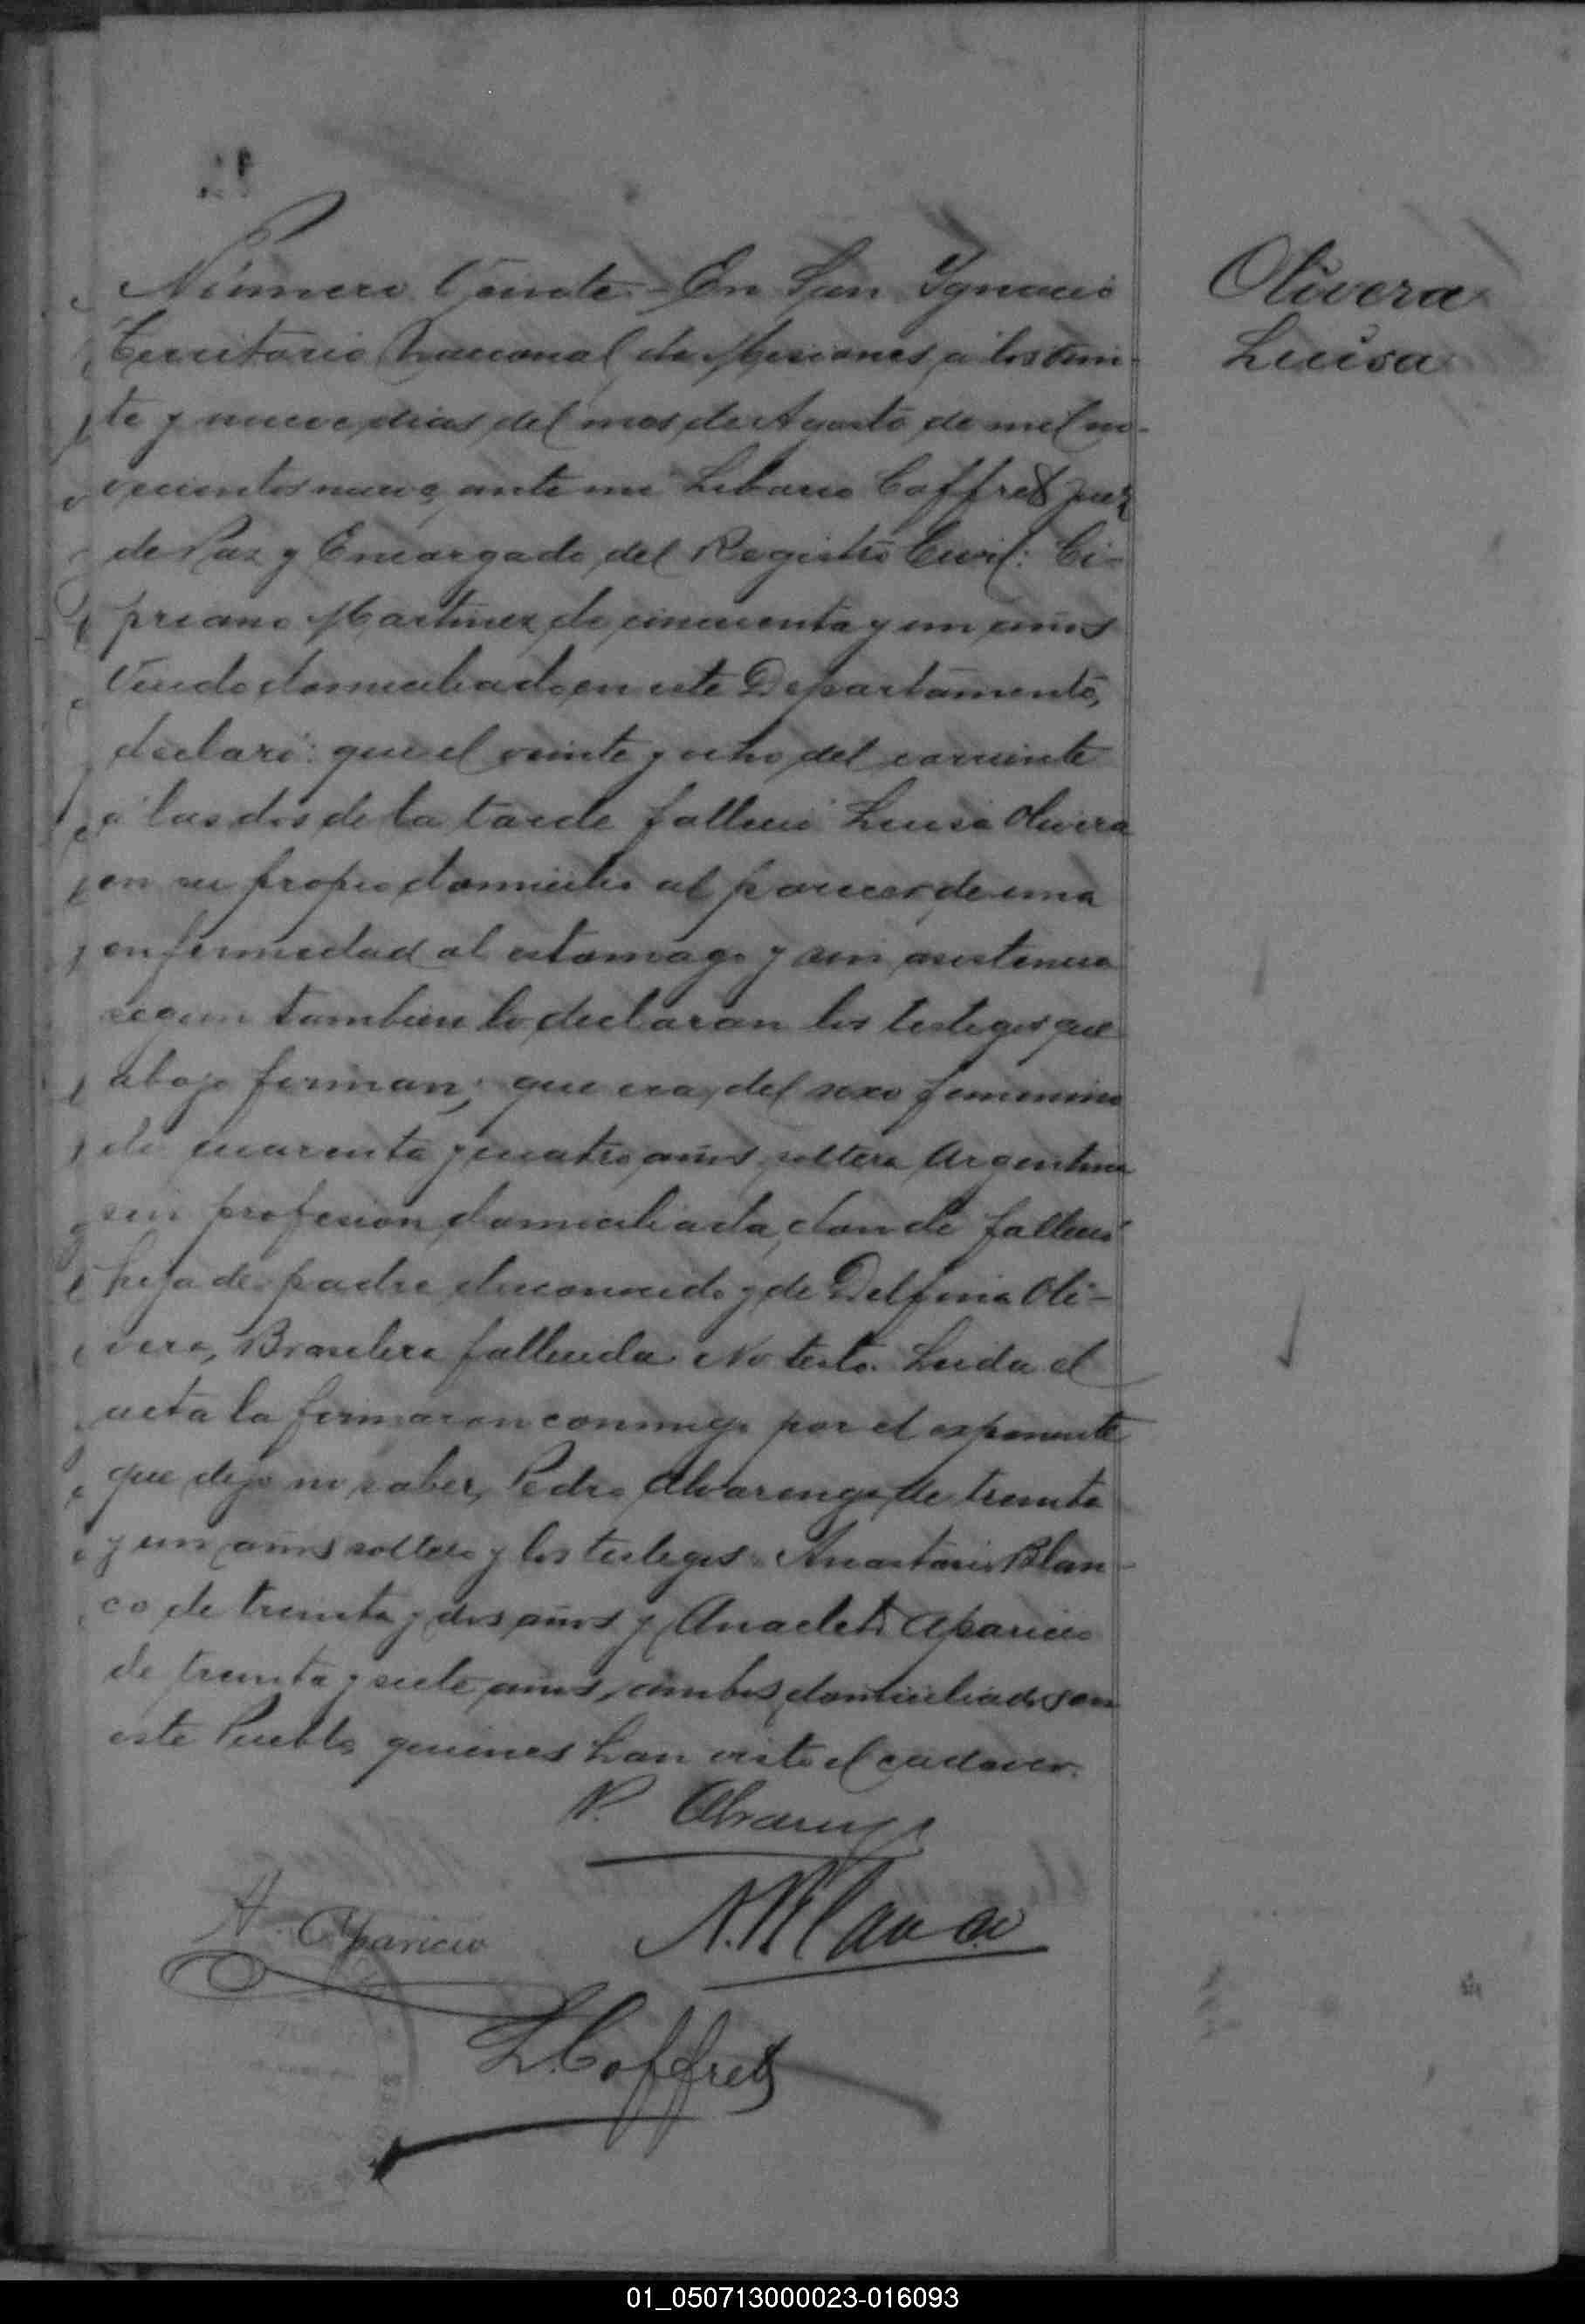 Número Veinte - En San Ygnacio
Territorio Nacional de Misiones, a los vein-
te y nueve dias del mes de Agosto de mil no-
vecientos nueve, ante mi Coffret Juez
de Paz y Encargado del Registro Civil: Ci-
priano Martinez de cincuenta y un años
Viudo domiciliado en este Departamento,
declaró: que el veinte y ocho del corriente
a las dos de la tarde falleció Luisa Olivera
en su propio domicilio al parecer de una
enfermedad al estomago y sin asistencia
segun tambien lo declaran los testigos que
abajo firman; que era del sexo femenino
de cuarenta y cuatro años, soltera Argentina
sin profesion domiciliada donde falleció
hija de padre desconocido y de Delfina Oli-
vera, Brasilera fallecida. No testó. Leida el
acta la firmaron conmigo por el exponente
que dijo no saber, Pedro Alvarenga de treinta
y un años soltero y los testigos: Anastacio Blan-
co de treinta y dos años y Anacleto Aparicio
de treinta y siete años, ambos domiciliados en
este Pueblo, quienes han visto el cadaver.
P. Alvarenga
A. Aparicio
A. Blanco
L. Coffret
Olivera
Luisa
01_050713000023-016093